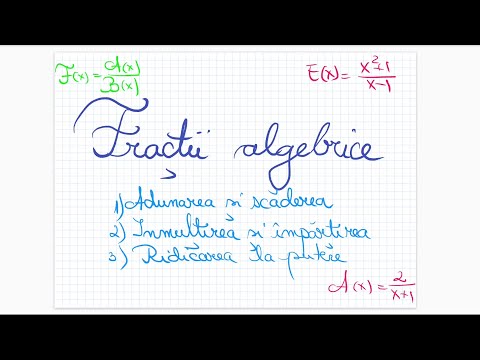 F(x) = A(x)/B(x)
E(x) = x²+1/x-1
Fracții algebrice
1) Adunarea și scăderea
2) Înmulțirea și împărțirea
3) Ridicarea la putere
A(x) = 2/x+1